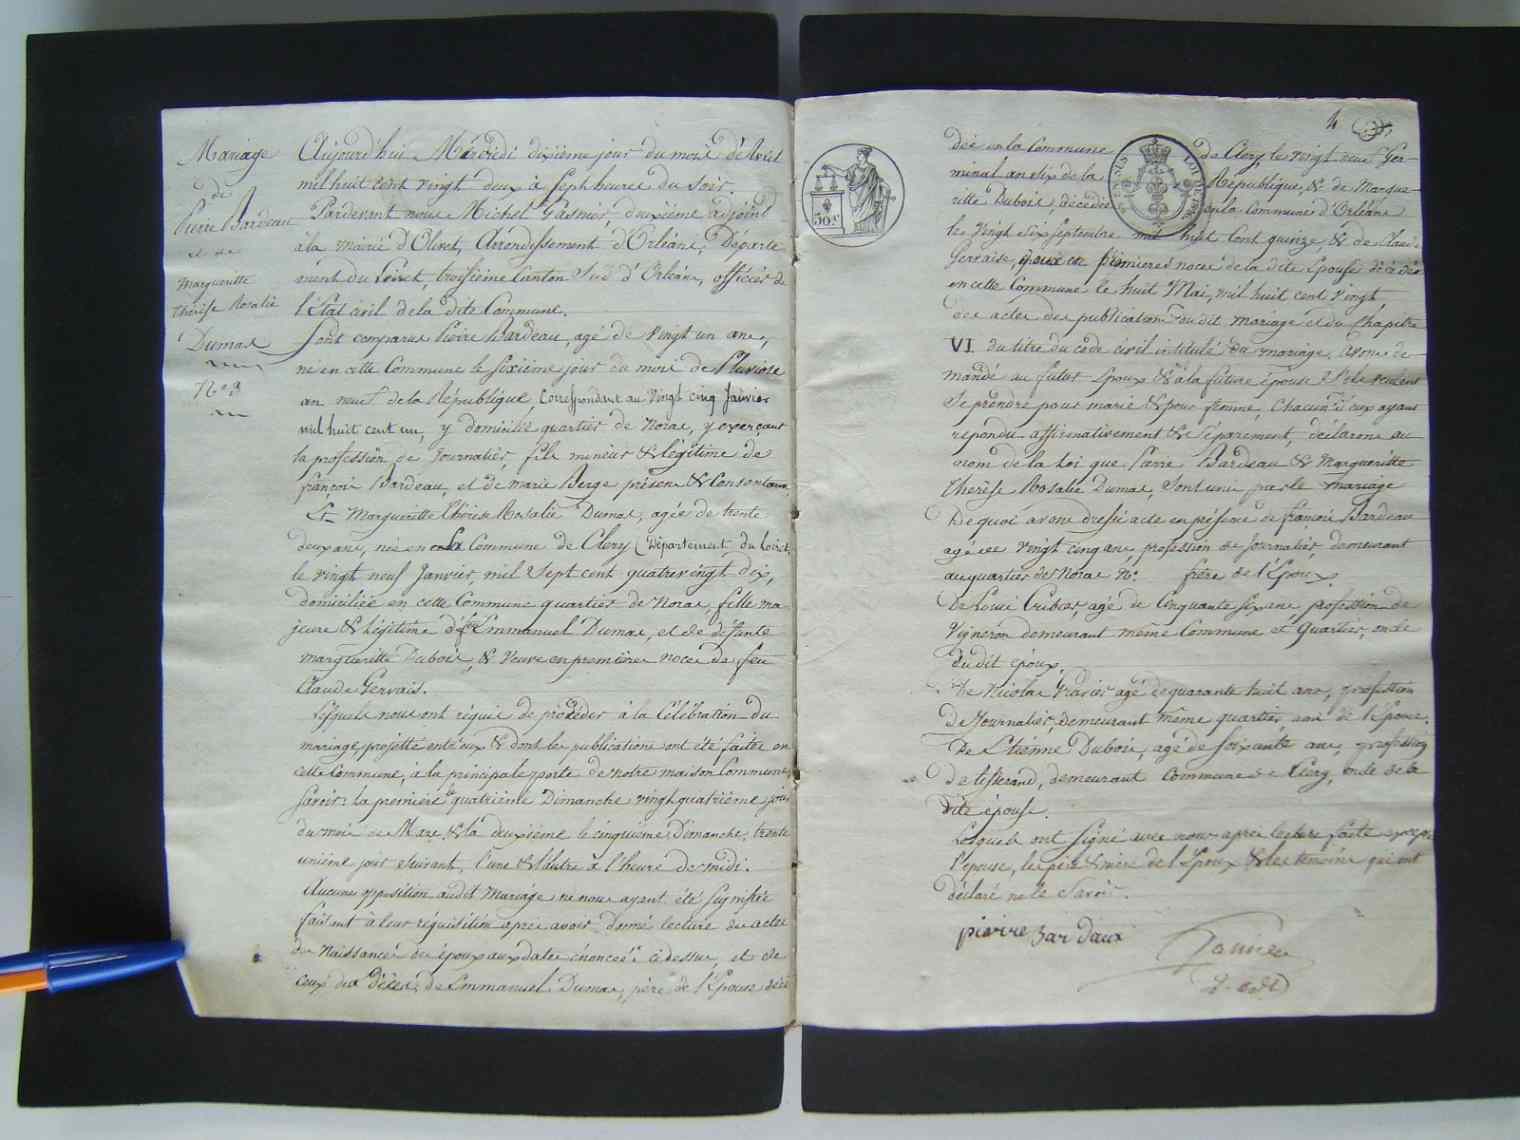 Mariage
de
Pierre Bardeau
et de
Margueritte
thérèse Rosalie
Dumas
N° 3
Aujourd'hui Mercredi dixième jour du mois d'Avril
mil huit cent vingt deux à Sept heures du Soir.
Pardevant nous Michel Gasnier, deuxième adjoint
à la mairie d'Olivet, Arrondissement d'Orléans, Départe
ment du Loiret, troisième Canton Sud d'Orléans, officier de
l'état civil de la dite Commune.
Sont comparus Pierre Bardeau, agé de vingt un ans,
né en cette Commune le Sixième jour du mois de Pluviose
an neuf de la République, Correspondant au vingt cinq Janvier
mil huit cent un, y domicilié quartier de Noras, y exerçant
la profession de Journalier, fils mineur & légitime de
françois Bardeau, et de marie Berge présens & Consentans,
Et Margueritte thérèse Rosalie Dumas, agée de trente
deux ans, née en la Commune de Clery (Département du Loiret)
le vingt neuf Janvier, mil Sept cent quatrevingt dix,
domiciliée en cette Commune quartier de Noras, fille ma
jeure & légitime de feu Emmanuel Dumas, et de défunte
margueritte Dubois, & veuve en premières noces de feu
Claude Gervais.
Lesquels nous ont réquis de procéder à la Célébration du
mariage projetté entr'eux & dont les publications ont été faites en
cette Commune, à la principale porte de notre maison Commune,
Savoir: la première le quatrième Dimanche vingt quatrième jour
du mois de Mars & la deuxième le cinquième Dimanche, trente
unième jour Suivant, l'une & l'autre à l'heure de midi.
Aucune opposition audit Mariage ne nous ayant été Signifiée
faisant à leur réquisition après avoir donné lecture des actes
de Naissances des époux aux dates énoncées ci dessus, et de
ceux des décès; de Emmanuel Dumas, père de l'Epouse décé
4
30c
dée en la Commune de Clery, le vingt neuf Ger-
minal an Six de la République, & de Margue-
ritte Dubois, décédée en la Commune d'Orléans
le vingt Six Septembre mil huit Cent quinze & de Claude
Gervais, époux en premières noces de la dite Epouse décédé
en cette Commune le huit Mai, mil huit cent vingt,
des actes des publications du dit mariage et du Chapitre
VI du titre du code civil intitulé du mariage, avons de-
mandé au futur Epoux & à la future épouse S'ils veulent
Se prendre pour mari & pour femme, Chacun d'eux ayant
répondu affirmativement & Séparement, déclarons au
nom de la Loi que Pierre Bardeau & Margueritte
thérèse Rosalie Dumas, Sont unis par le mariage
De quoi avons dressé acte en présence de françois Bardeau
agé de vingt cinq ans, profession de Journalier demeurant
au quartier de Noras N°. frère de l'Epoux.
De Louis Cribier, agé de Cinquante six ans profession de
Vigneron demeurant même Commune et Quartier, oncle
du dit époux.
De Nicolas agé de quarante huit ans, profession
de Journalier, demeurant même quartier, ami de l'Epoux.
De Etienne Dubois, agé de Soixante ans, profession
de tisserand, demeurant Commune de Clery, oncle de la
dite épouse.
Lesquels ont Signé avec nous après lecture faite excepté
l'épouse, les père & mère de l'Epoux & les témoins qui ont
déclaré ne le Savoir.
pierre bardaux
Gasnier
2. adt